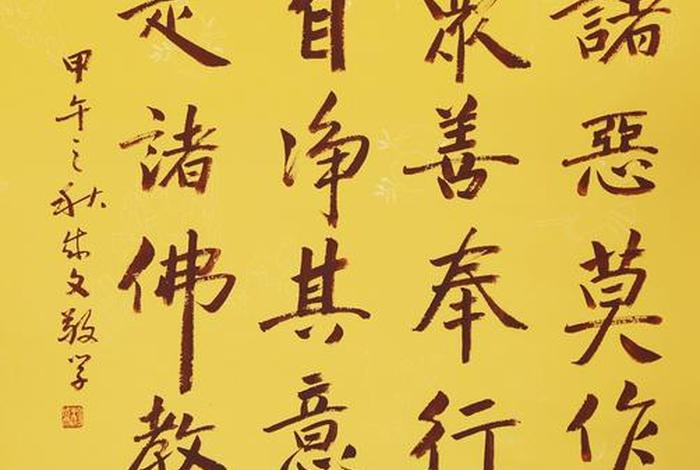 諸惡莫作
眾善奉行
自净其意
是諸佛教
甲午之秋成文敬学